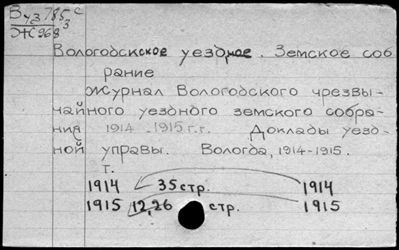 В 43 785 с
Ж 968 3
Вологодскское уездное. Земское соб
рание
Журнал Вологодского чрезвы-
чайного уездного земского собра-
ния 1914-1915 г.г. Доклады уезд-
ной управы. Вологда, 1914-1915.
г.
1914 35 стр. 1914
1915 12,26 стр. 1915